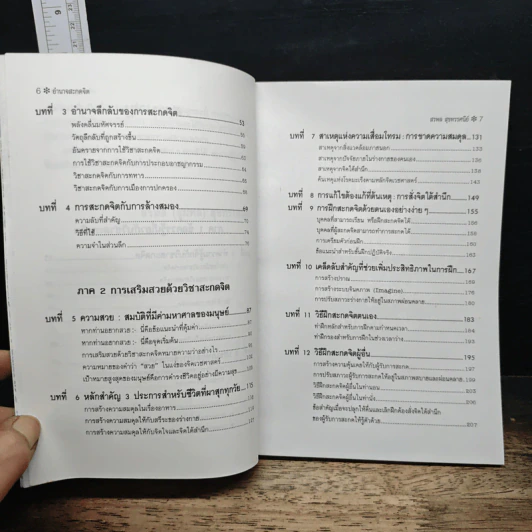 6 ❄ อำนาจสะกดจิต
บทที่ 3 อำนาจลึกลับของการสะกดจิต 53
พลังคลื่นมหัศจรรย์
วัตถุลึกลับที่ถูกสร้างขึ้น
อันตรายจากการใช้วิชาสะกดจิต
การใช้วิชาสะกดจิตกับการประกอบอาชญากรรม
วิชาสะกดจิตกับการทหาร
วิชาสะกดจิตกับการเมืองการปกครอง
บทที่ 4 การสะกดจิตกับการล้างสมอง 69
ความลับที่สำคัญ
วิธีที่ใช้
ความจำในส่วนลึก
ภาค 2 การเสริมสวยด้วยวิชาสะกดจิต
บทที่ 5 ความสวย : สมบัติที่มีค่ามหาศาลของมนุษย์ 87
หากท่านอยากสวย - นี่คือข้อแนะนำที่คุ้มค่า
หากท่านอยากสวย - นี่คือจุดเริ่มต้น
การเสริมสวยด้วยวิชาสะกดจิตหมายความว่าอย่างไร
ความหมายของคำว่า "สวย" ในแง่ของจิตเวชศาสตร์
เป้าหมายสูงสุดของมนุษย์คือการดำรงชีวิตอยู่อย่างมีความสุข
บทที่ 6 หลักสำคัญ 3 ประการสำหรับชีวิตที่ผาสุกทุกวัย 115
การสร้างความสมดุลในเรื่องอาหาร
การสร้างความสมดุลให้กับสรีระของร่างกาย
การสร้างความสมดุลให้กับจิตใจและจิตใต้สำนึก
❄ 7
บทที่ 7 สาเหตุแห่งความเสื่อมโทรม : การขาดความสมดุล 131
สาเหตุจากสิ่งแวดล้อมภายนอก
สาเหตุจากปัจจัยภายในร่างกายของตนเอง
สาเหตุจากจิตใต้สำนึก
ต้นเหตุแห่งโรคมะเร็งตามหลักจิตเวชศาสตร์
บทที่ 8 การแก้ไขต้องแก้ที่ต้นเหตุ : การสั่งจิตใต้สำนึก 149
บทที่ 9 การฝึกสะกดจิตด้วยตนเองอย่างง่าย ๆ 155
บุคคลที่สามารถเรียน หรือฝึกสะกดจิตได้
บุคคลที่ผู้สะกดจิตสามารถทำการสะกดได้
การเตรียมตัวก่อนฝึก
ข้อแนะนำสำหรับขั้นปฏิบัติจริง
บทที่ 10 เคล็ดลับสำคัญที่ช่วยเพิ่มประสิทธิภาพในการฝึก 167
การสร้างปราณ
การสร้างระบบจินตภาพ (Imagine)
การปรับสภาวะร่างกายให้อยู่ในสภาพผ่อนคลาย
บทที่ 11 วิธีฝึกสะกดจิตตนเอง 183
ท่าฝึกหลักสำหรับการฝึกตามกำหนดเวลา
ท่าฝึกรองสำหรับการฝึกในช่วงเวลาว่าง
บทที่ 12 วิธีฝึกสะกดจิตผู้อื่น 193
การสร้างความคุ้นเคยให้กับผู้รับการสะกดจิต
การปรับสภาวะผู้รับการสะกดจิตให้อยู่ในสภาพสบายและผ่อนคลาย
วิธีฝึกสะกดจิตผู้อื่นในท่านอน 200
วิธีฝึกสะกดจิตผู้อื่นในท่านั่ง
ข้อสำคัญเมื่อจะปลุกให้ตื่นและเลิกฝึกต้องสั่งจิตใต้สำนึก
ของผู้รับการสะกดให้รู้ตัวด้วย 207